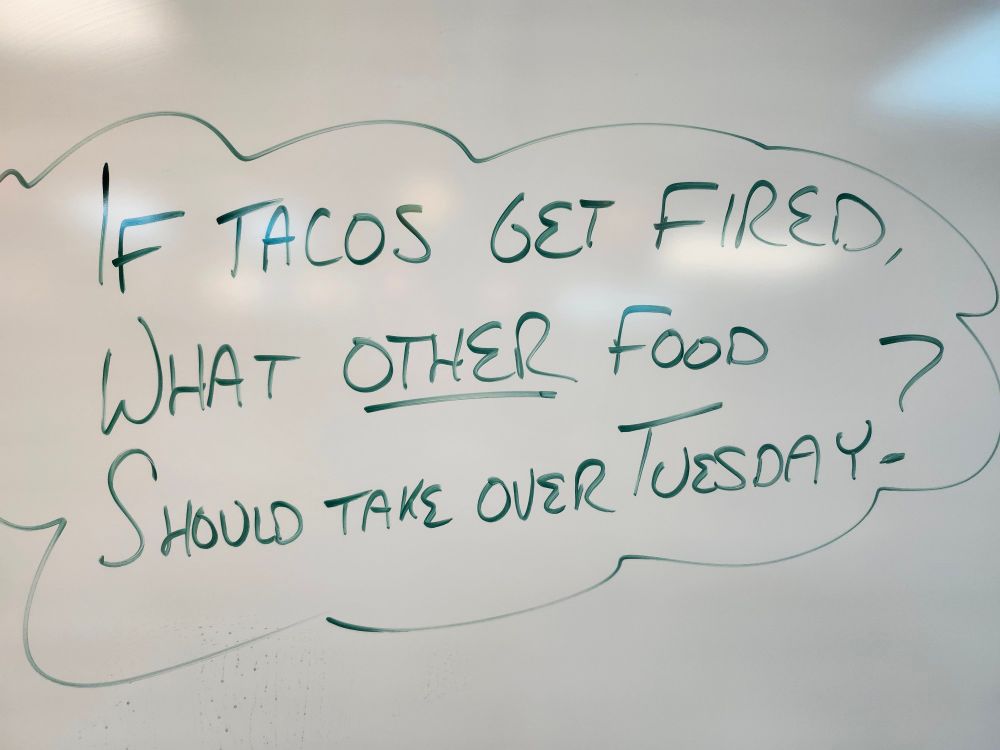 IF TACOS GET FIRED,
WHAT OTHER FOOD
SHOULD TAKE OVER TUESDAY?